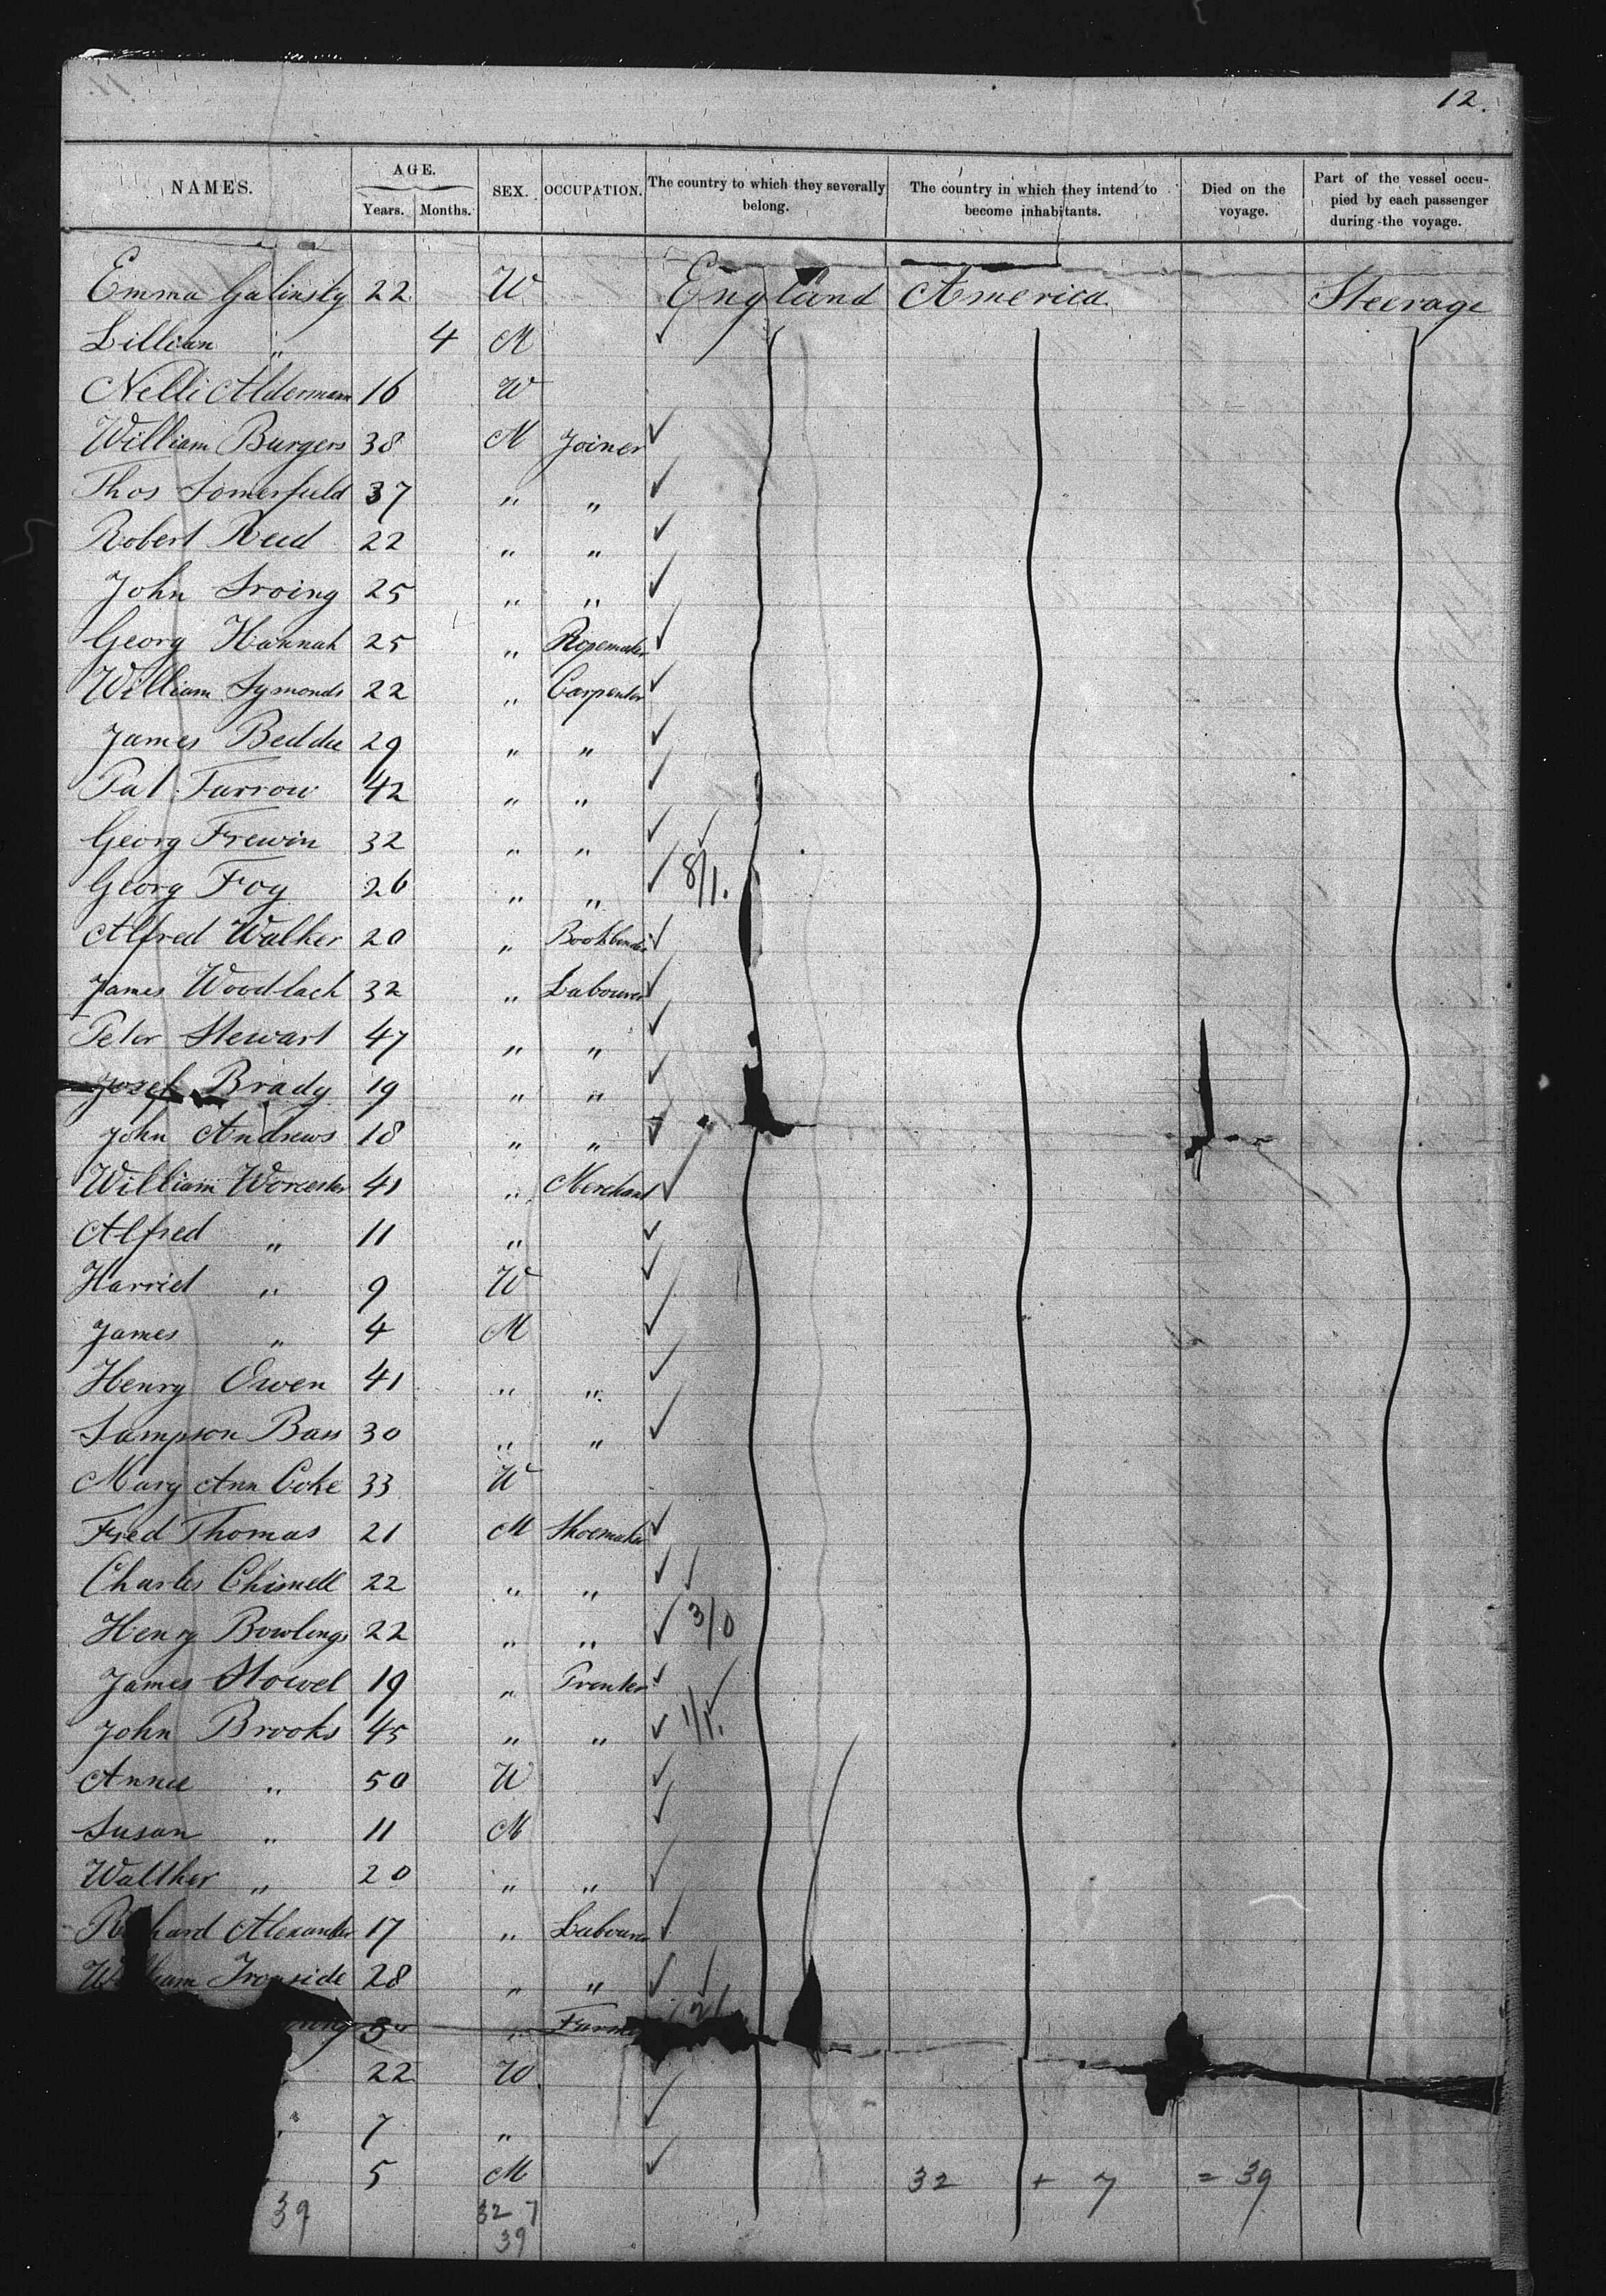 12.
NAMES. AGE. Years. Months. SEX. OCCUPATION. The country to which they severally belong. The country in which they intend to become inhabitants. Died on the voyage. Part of the vessel occupied by each passenger during the voyage.
Emma Galinsky 22 W England America Steerage
Lillian " 4 M
Nelli Aldermann 16 W
William Burgers 38 M Joiner
Thos Somerfield 37 " "
Robert Reid 22 " "
John Iroing 25 " "
Georg Hannah 25 " Ropemaker
William Symonds 22 " Carpenter
James Beddie 29 " "
Pat. Farrow 42 " "
Georg Frewin 32 " "
Georg Foy 26 " " 8/1.
Alfred Walker 20 " Bookbinder
James Woodlach 32 " Labourer
Peter Stewart 47 " "
Josef Brady 19 " "
John Andrews 18 " "
William Worcester 41 " Merchant
Alfred " 11 "
Harriet " 9 W
James " 4 M
Henry Owen 41 " "
Sampson Bass 30 " "
Mary Ann Coke 33 W
Fred Thomas 21 M Shoemaker
Charles Chismell 22 " "
Henry Bowlings 22 " " 3/0
James Stowel 19 " Printer
John Brooks 45 " " 1/1.
Annie " 50 W
Susan " 11 M
Walther " 20 " "
Richard Alexander 17 " Labourer
William Ironside 28 " "
" Farmer
22 W
" 7 "
5 M 32 + 7 = 39
39 32 7
39